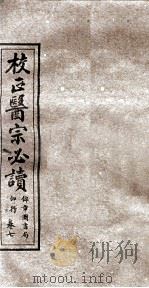 校正醫宗必讀
錦章圖書局
印行 卷七